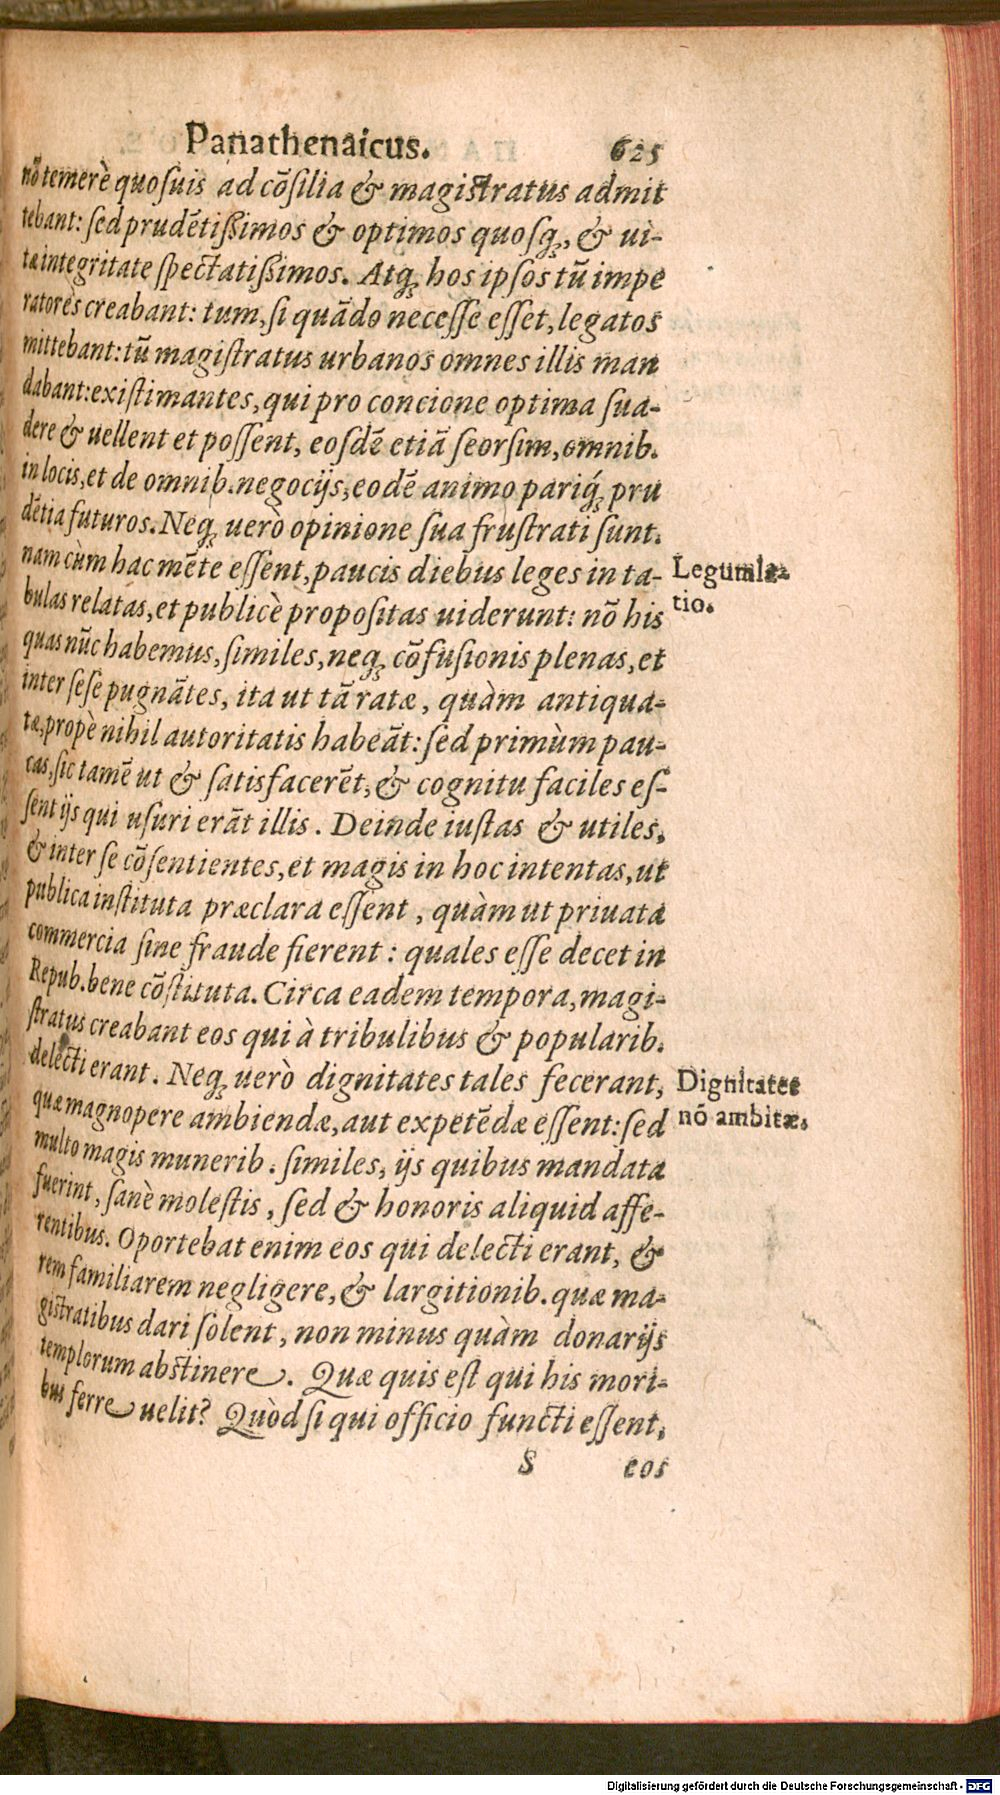 Panathenaicus. 625
nō temerè quosuis ad cōsilia & magistratus admit
tebant: sed prudētißimos & optimos quosq;, & ui-
tæ integritate spectatißimos. Atq; hos ipsos tū impe
ratores creabant: tum, si quādo necesse esset, legatos
mittebant: tū magistratus urbanos omnes illis man
dabant: existimantes, qui pro concione optima sua-
dere & uellent et possent, eosdē etiā seorsim, omnib.
in locis, et de omnib. negocijs, eodē animo pariq́; pru
dētia futuros. Neq; uerò opinione sua frustrati sunt.
nam cùm hac mēte essent, paucis diebus leges in ta-
Legumla-
bulas relatas, et publicè propositas uiderunt: nō his
tio.
quas nūc habemus, similes, neq; cōfusionis plenas, et
inter sese pugnātes, ita ut tā ratæ, quàm antiqua-
tæ, propè nihil autoritatis habeāt: sed primùm pau-
cas, sic tamē ut & satisfacerēt, & cognitu faciles es-
sent ijs qui usuri erāt illis. Deinde iustas & utiles,
& inter se cōsentientes, et magis in hoc intentas, ut
publica instituta præclara essent, quàm ut priuata
commercia sine fraude fierent: quales esse decet in
Repub. bene cōstituta. Circa eadem tempora, magi-
stratus creabant eos qui à tribulibus & popularib.
delecti erant. Neq; uerò dignitates tales fecerant,
Dignitates
quæ magnopere ambiendæ, aut expetēdæ essent: sed
nō ambitæ.
multo magis munerib. similes, ijs quibus mandata
fuerint, sanè molestis, sed & honoris aliquid affe-
rentibus. Oportebat enim eos qui delecti erant, &
rem familiarem negligere, & largitionib. quæ ma-
gistratibus dari solent, non minus quàm donarijs
templorum abstinere. Quæ quis est qui his mori-
bus ferre uelit? Quòd si qui officio functi essent,
S eos
Digitalisierung gefördert durch die Deutsche Forschungsgemeinschaft - DFG